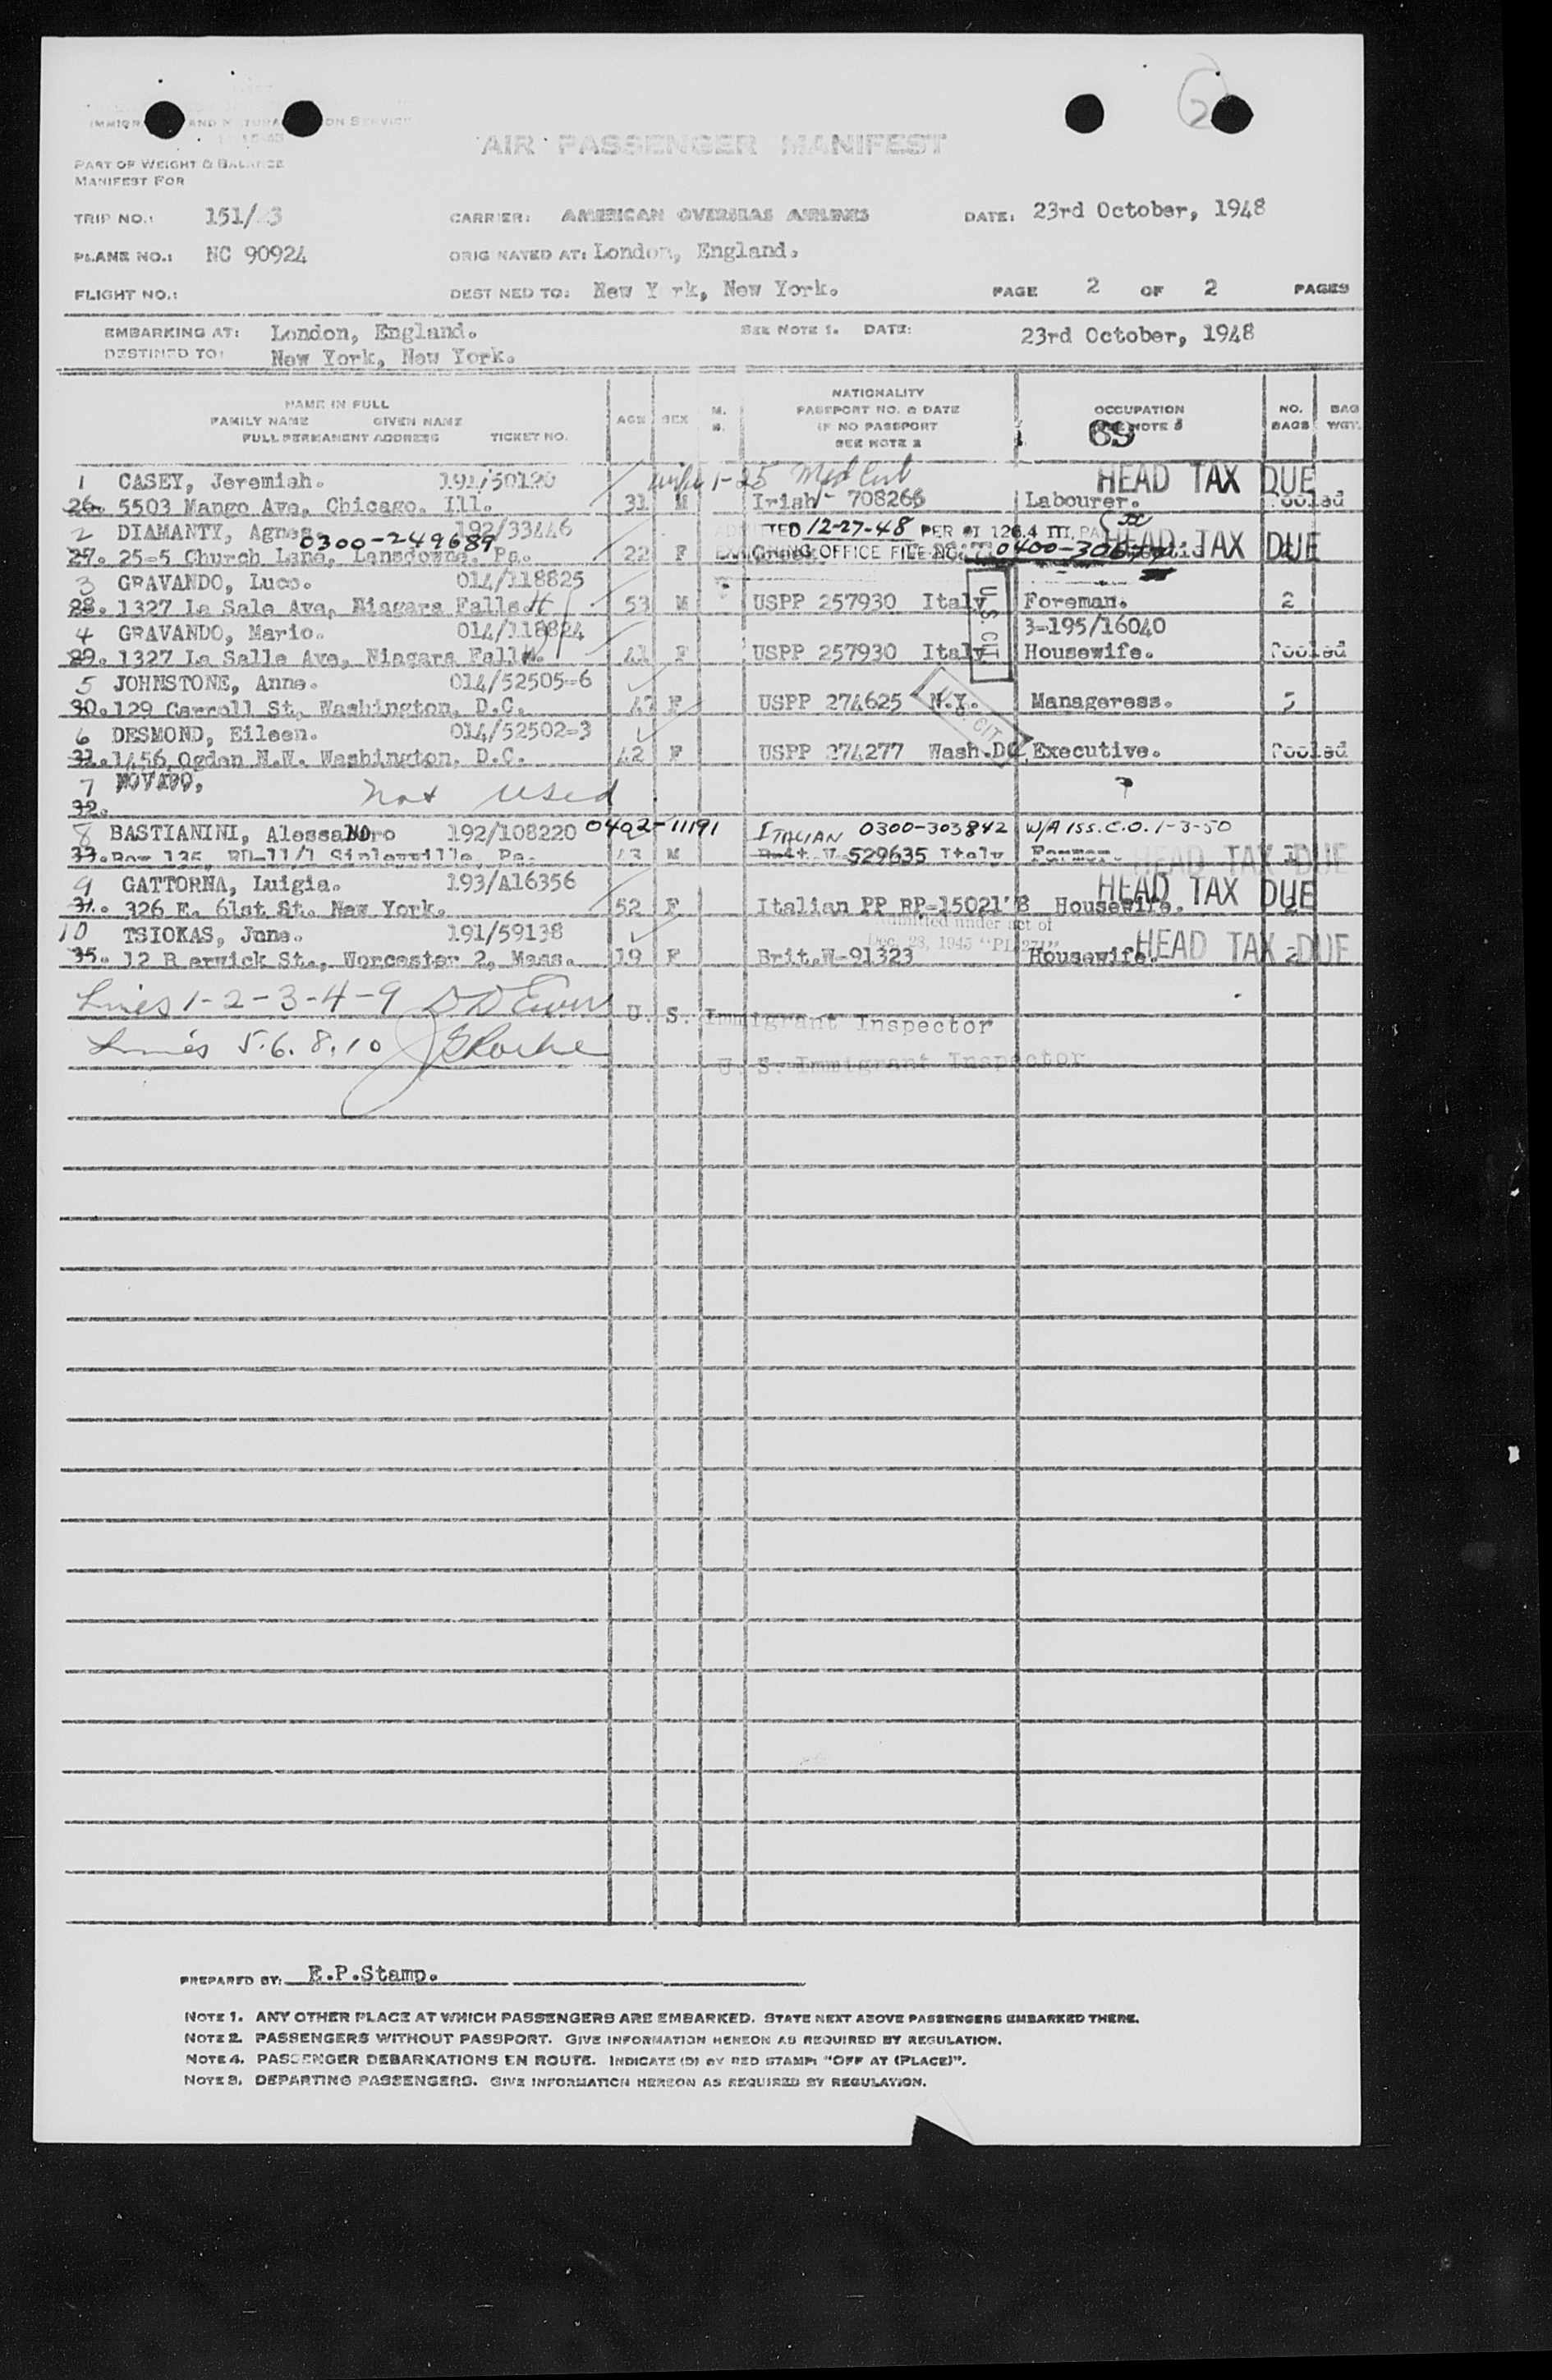 2
AIR PASSENGER MANIFEST
PART OF WEIGHT & BALANCE
MANIFEST FOR
TRIP NO.: 151/ 3 CARRIER: AMERICAN OVERSEAS AIRLINES DATE: 23rd October, 1948
PLANE NO.: NC 90924 ORIG NATED AT: London, England.
FLIGHT NO.: DEST NED TO: New Y rk, New York. PAGE 2 OF 2 PAGES
EMBARKING AT: London, England. SEE NOTE 1. DATE: 23rd October, 1948
DESTINED TO: New York, New York.
NAME IN FULL
FAMILY NAME GIVEN NAME
FULL PERMANENT ADDRESS TICKET NO.
AGE SEX
NATIONALITY
PASSPORT NO. & DATE
IF NO PASSPORT
SEE NOTE 2
OCCUPATION
NOTE 3
69
NO. BAGS
BAG WGT.
1 CASEY, Jeremiah. 191/50120 1-25 Med Cert HEAD TAX DUE
26. 5503 Mango Ave, Chicago. Ill. 31 M Irish - 708266 Labourer. Pooled
2 DIAMANTY, Agnes. 192/33446 12-27-48 PER OI 126.4 III, PA
0300-249689 HEAD TAX DUE
27. 25-5 Church Lane, Lansdowne. Pa. 22 F OFFICE FILE NO.
3 GRAVANDO, Luco. 014/118825
28. 1327 La Sale Ave, Niagara Falls 53 M USPP 257930 Italy Foreman. 2
U.S. CIT
4 GRAVANDO, Mario. 014/118824 3-195/16040
29. 1327 La Salle Ave, Niagara Falls. 41 F USPP 257930 Italy Housewife. Pooled
5 JOHNSTONE, Anne. 014/52505-6
30. 129 Carroll St, Washington, D.C. 47 F USPP 274625 N.Y. Manageress.
U.S. CIT
6 DESMOND, Eileen. 014/52502-3
31. 1456 Ogden N.W. Washington, D.C. 42 F USPP 274277 Wash.DC Executive. Pooled
7 NOVADO,
not used
32.
8 BASTIANINI, Alessandro 192/108220 0402-11191 ITALIAN 0300-303842 W/A ISS. C.O. 1-3-50
33. Box 135, RD-11/1 Siplesville, Pa. 43 M Brit. W-529635 Italy Farmer. HEAD TAX DUE
9 GATTORNA, Luigia. 193/A16356 HEAD TAX DUE
34. 326 E. 61st St. New York. 52 F Italian PP RP-15021'8 Housewife.
10 TSIOKAS, June. 191/59138 Admitted under act of
Dec. 28, 1945 "PL 271" HEAD TAX DUE
35. 12 B erwick St., Worcester 2, Mass. 19 F Brit.W-91323 Housewife. 2
Lines 1-2-3-4-9
U. S. Immigrant Inspector
Lines 5.6.8.10
U. S. Immigrant Inspector
PREPARED BY: E.P.Stamp.
NOTE 1. ANY OTHER PLACE AT WHICH PASSENGERS ARE EMBARKED. STATE NEXT ABOVE PASSENGERS EMBARKED THERE.
NOTE 2. PASSENGERS WITHOUT PASSPORT. GIVE INFORMATION HEREON AS REQUIRED BY REGULATION.
NOTE 4. PASSENGER DEBARKATIONS EN ROUTE. INDICATE (D) BY RED STAMP: "OFF AT (PLACE)".
NOTE 3. DEPARTING PASSENGERS. GIVE INFORMATION HEREON AS REQUIRED BY REGULATION.